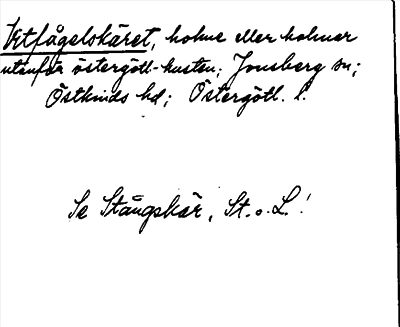 Vitfågelskäret, holme eller holmar
utanför östergötl-kusten; Jonsberg sn;
Östkinds hd; Östergötl. l.
Se Stångskär, St. o. L.!